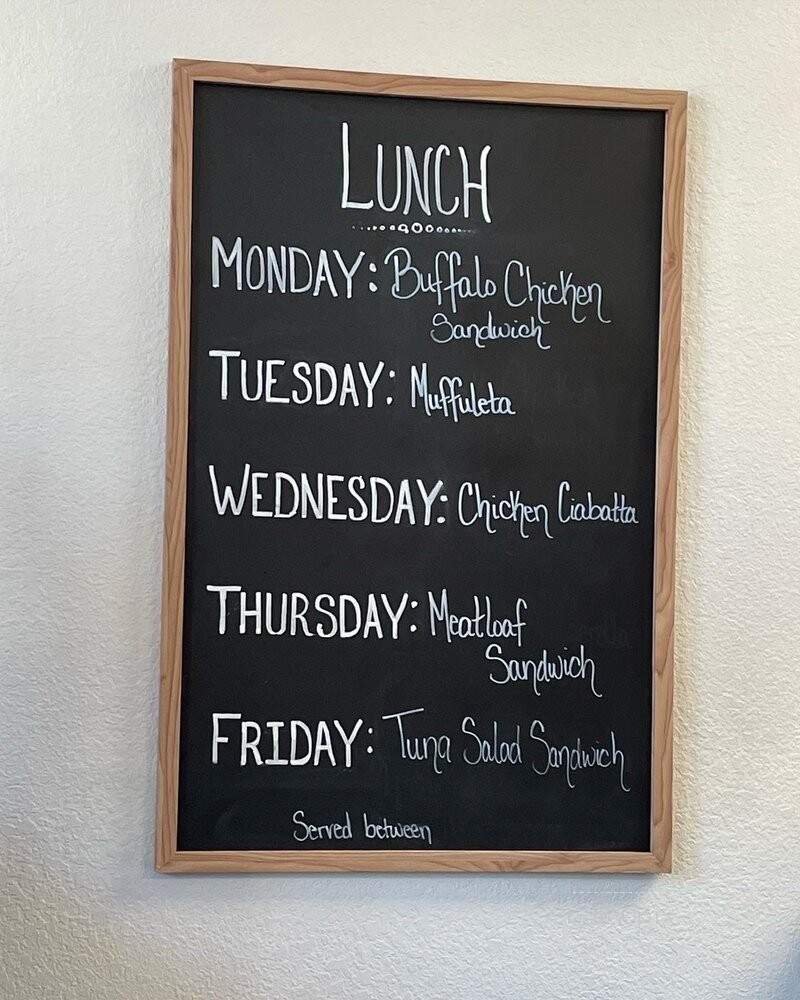 LUNCH
MONDAY: Buffalo Chicken
Sandwich
TUESDAY: Muffuleta
WEDNESDAY: Chicken Ciabatta
THURSDAY: Meatloaf
Sandwich
FRIDAY: Tuna Salad Sandwich
Served between